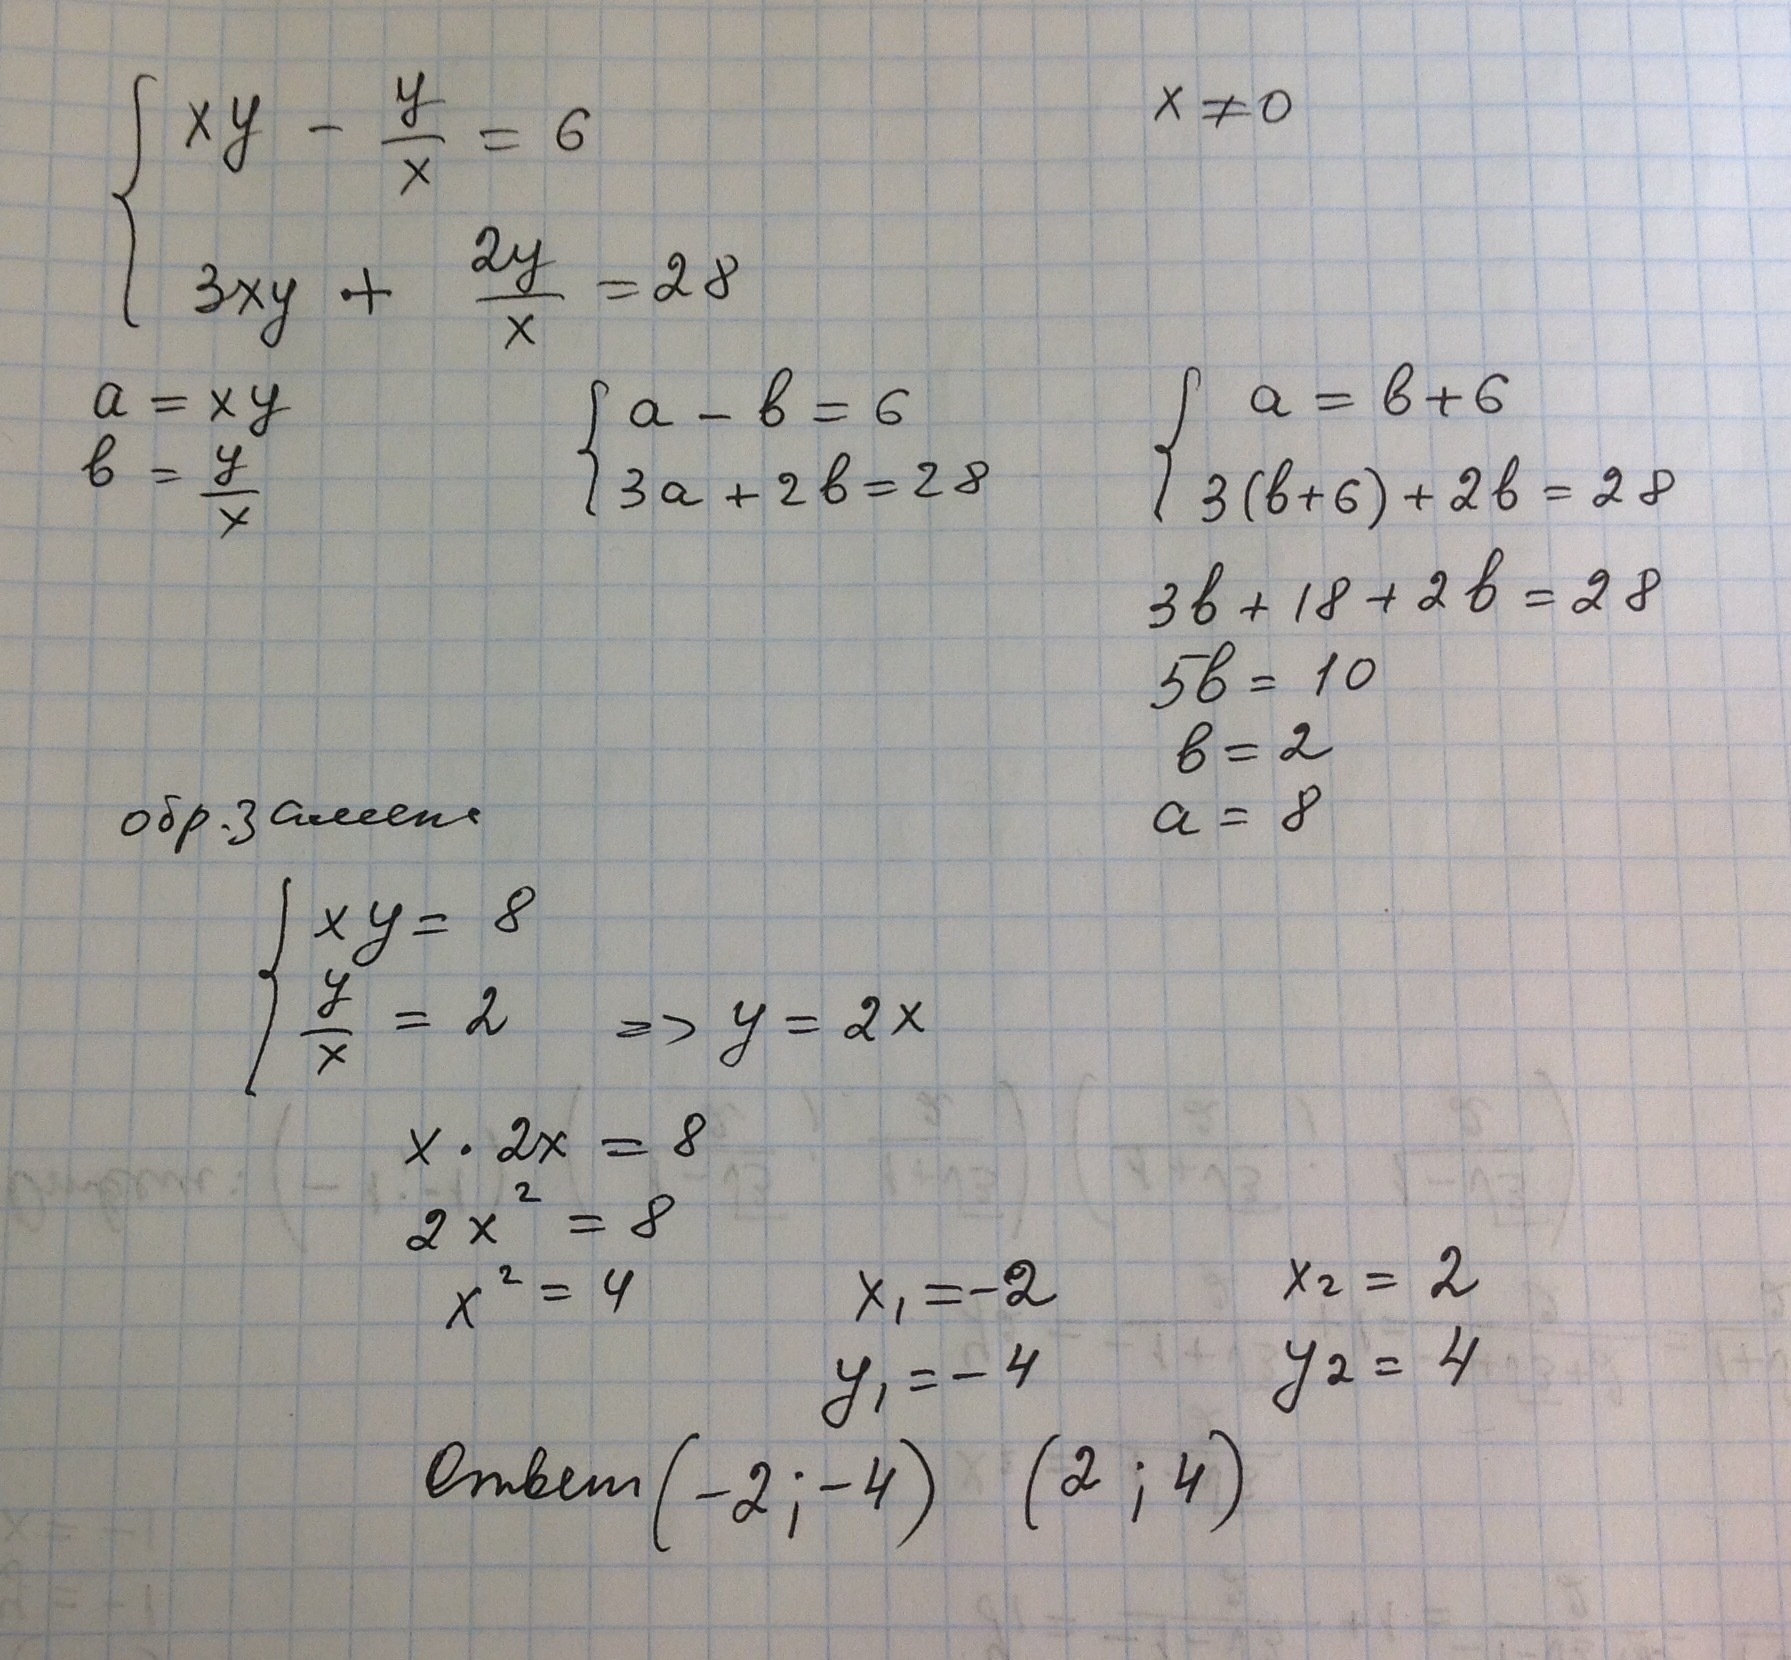 xy - y/x = 6
x ≠ 0
3xy + 2y/x = 28
a = xy
в = y/x
a - в = 6
3a + 2в = 28
a = в + 6
3(в+6) + 2в = 28
3в + 18 + 2в = 28
5в = 10
в = 2
a = 8
обр. замена
xy = 8
y/x = 2 => y = 2x
x · 2x = 8
2x² = 8
x² = 4
x₁ = -2
y₁ = -4
x₂ = 2
y₂ = 4
Ответ (-2; -4) (2; 4)